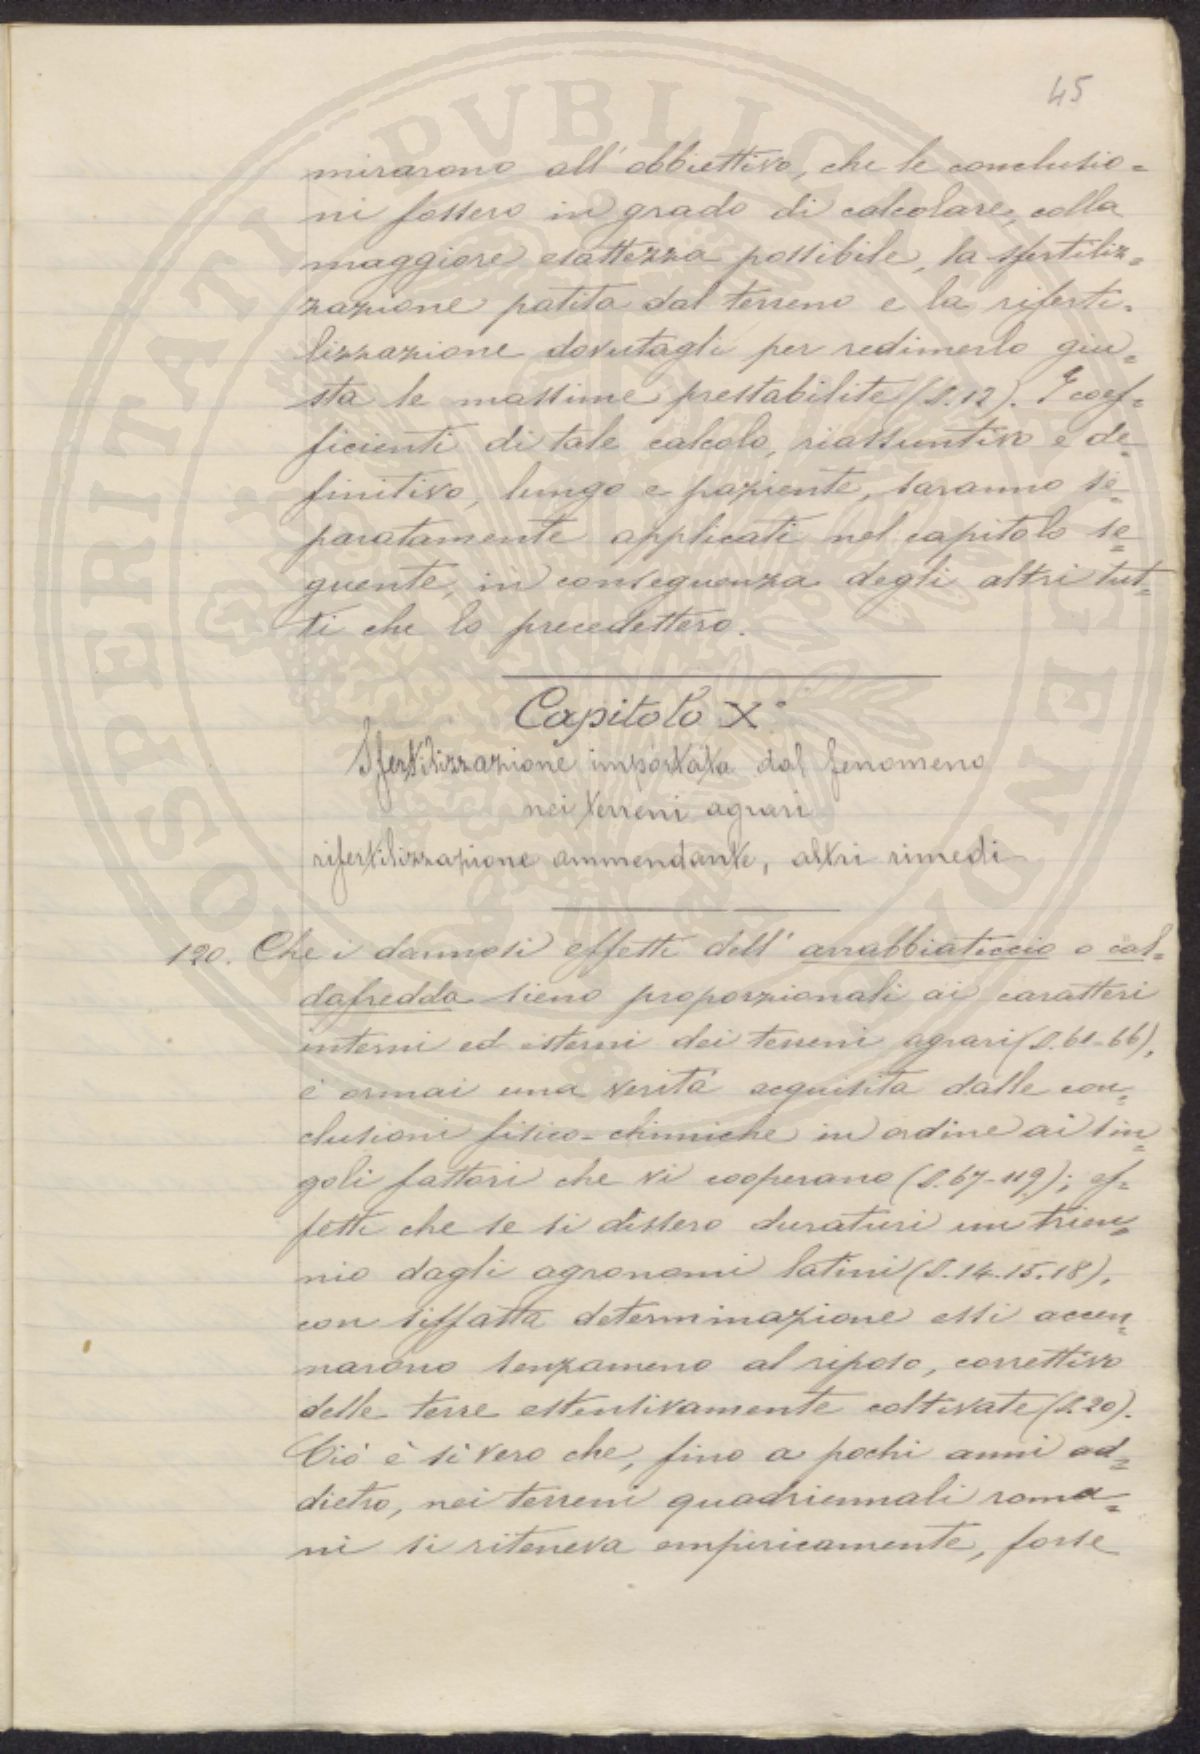 45
mirarono all'obbiettivo, che le conclusio=
ni fossero in grado di calcolare, colla
maggiore esattezza possibile, la sfertiliz=
zazione patita dal terreno e la riferti=
lizzazione dovutagli per redimerlo giu=
sta le massime prestabilite (§.12). I coef=
ficienti di tale calcolo, riassuntivo e de=
finitivo, lungo e paziente, saranno se=
paratamente applicati nel capitolo se=
guente, in conseguenza degli altri tut=
ti che lo precedettero.
Capitolo X°
Sfertilizzazione importata dal fenomeno
nei terreni agrari
rifertilizzazione ammendante, altri rimedi
120. Che i dannosi effetti dell'arrabbiaticcio o cal=
dafredda sieno proporzionali ai caratteri
interni ed esterni dei terreni agrari (§.61-66),
è ormai una verità acquisita dalle con=
clusioni fisico-chimiche in ordine ai sin=
goli fattori che vi cooperano (§.67-119); ef=
fetti che se si dissero duraturi un trien=
nio dagli agronomi latini (§.14.15.18),
con siffatta determinazione essi accen=
narono senzameno al riposo, correttivo
delle terre estensivamente coltivate (§.20).
Ciò è sì vero che, fino a pochi anni ad=
dietro, nei terreni quadriennali roma=
ni si riteneva empiricamente, forse
PROSPERITATI PVBLICAE